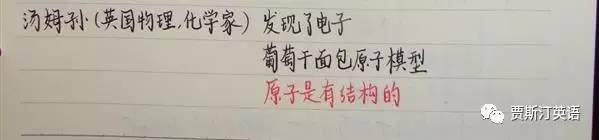 汤姆孙(英国物理,化学家) 发现了电子
葡萄干面包原子模型
原子是有结构的
贾斯汀英语